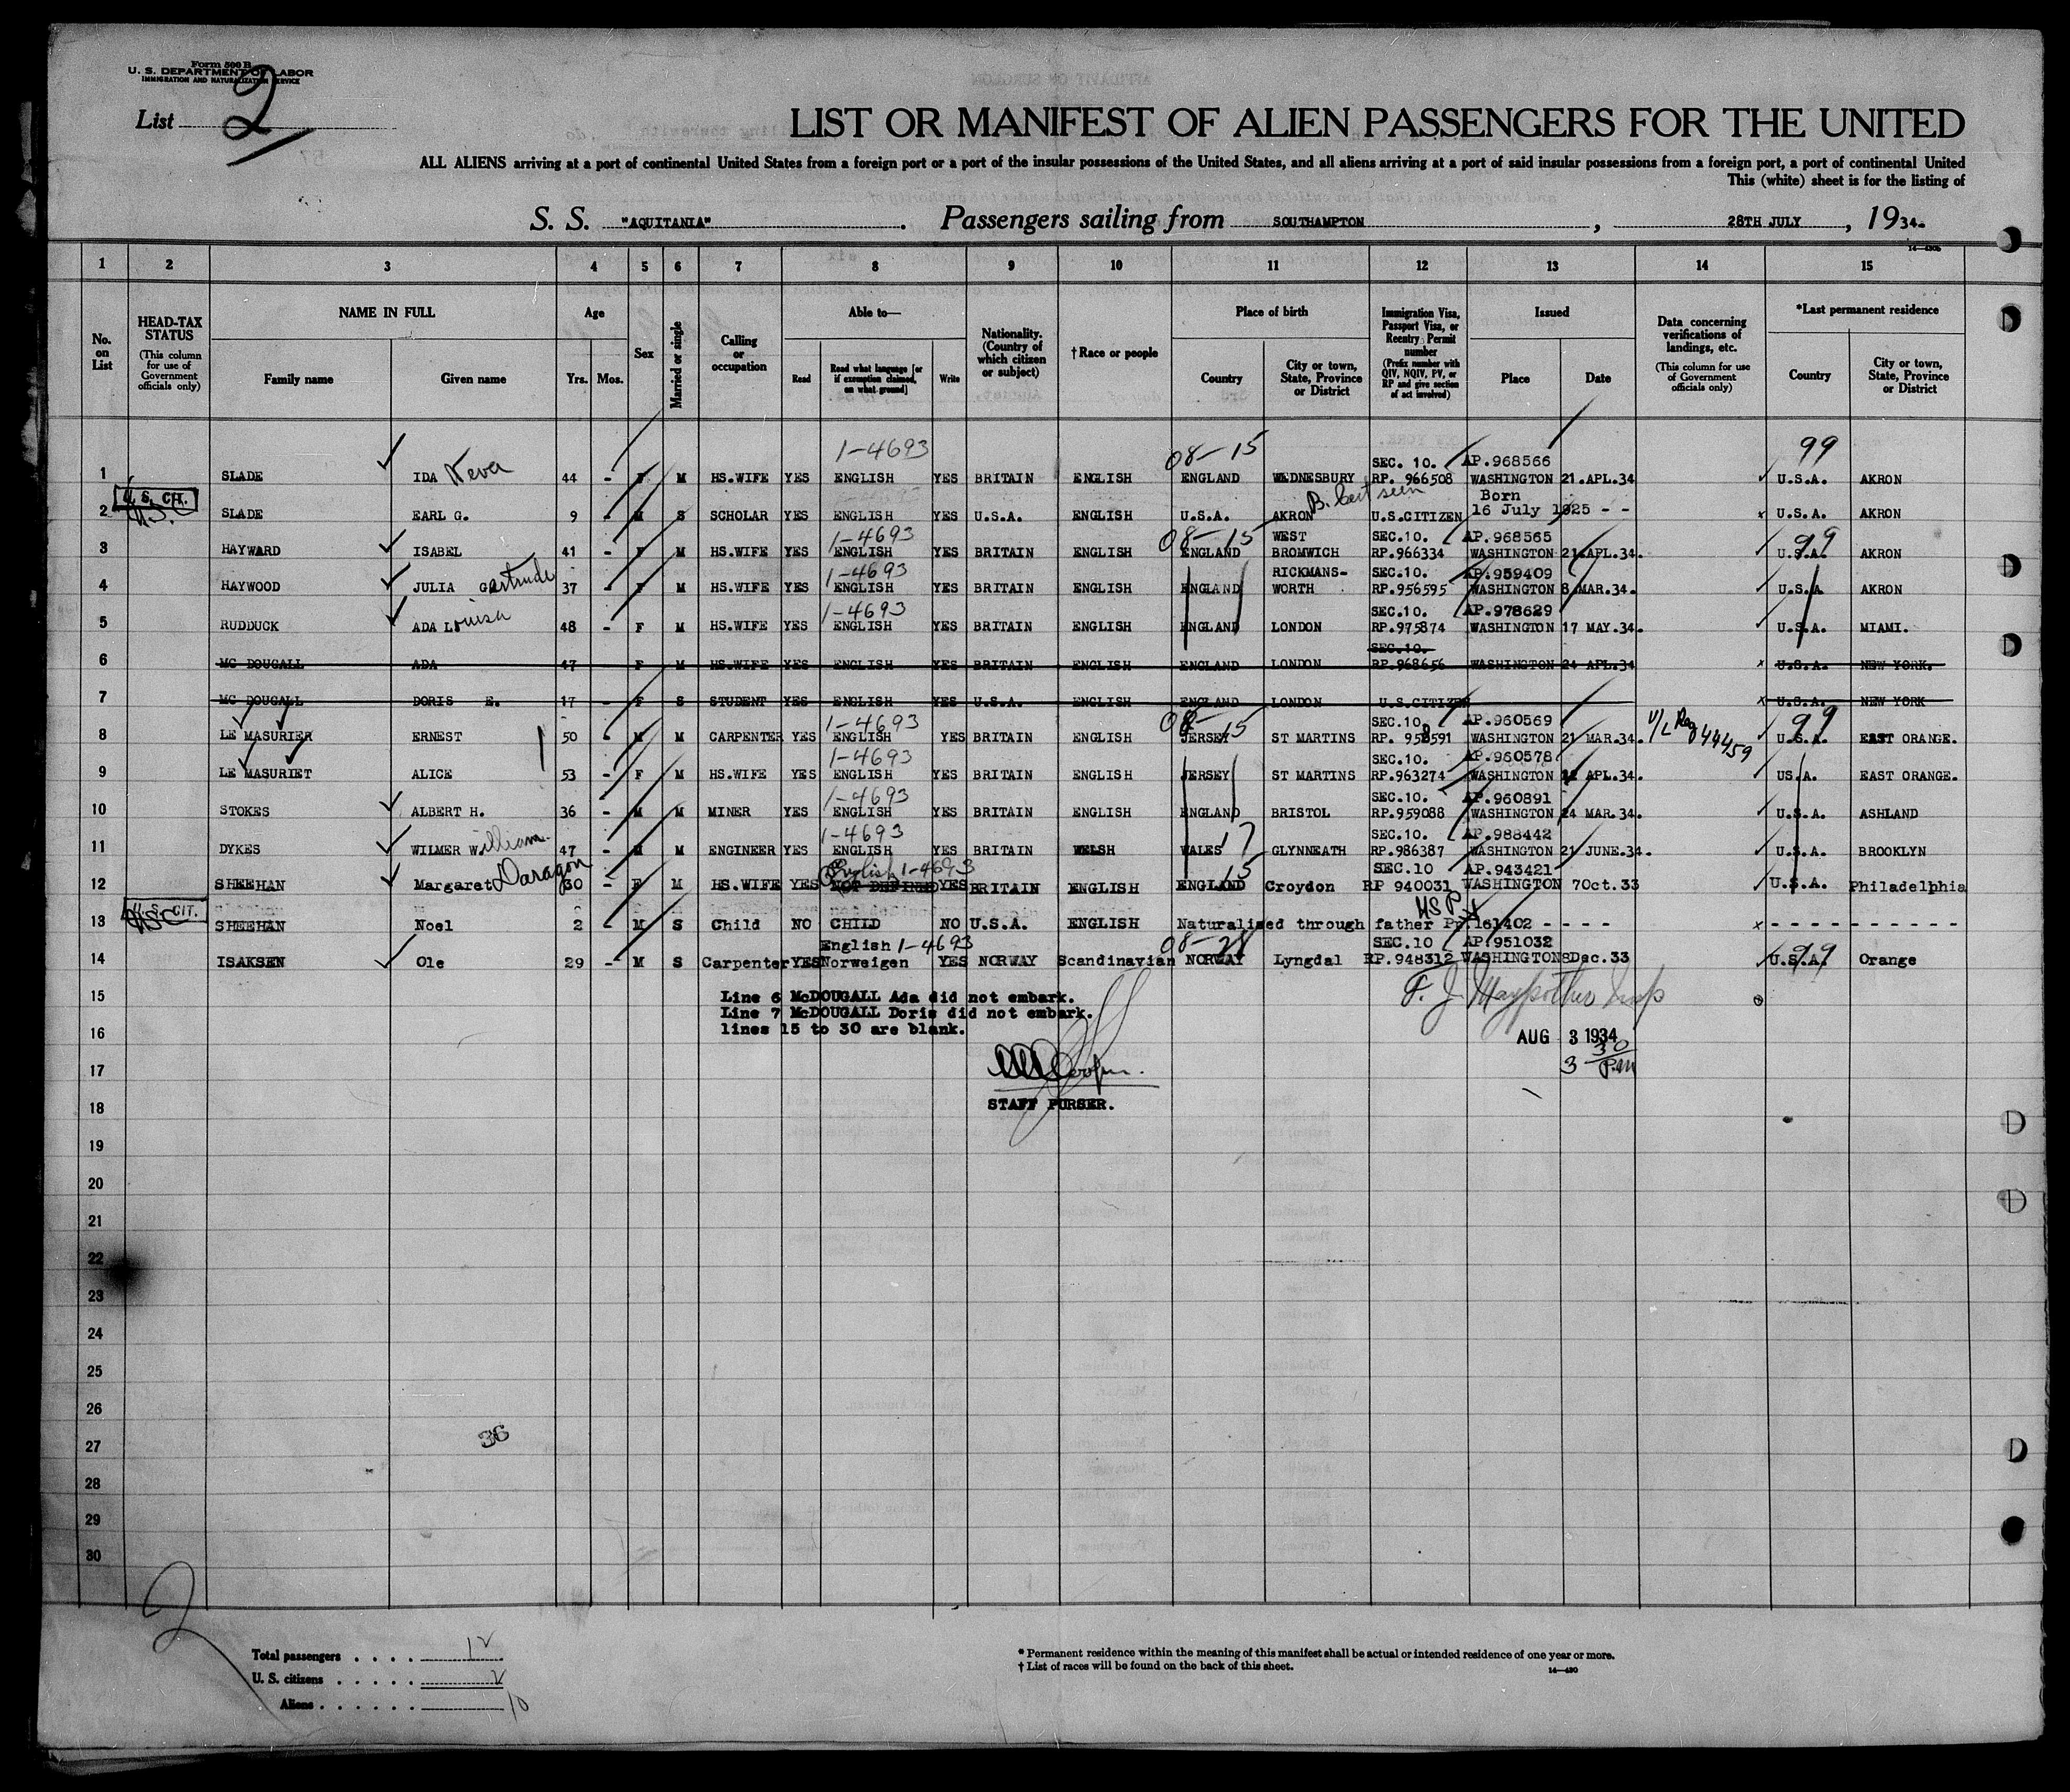 Form 500 B
U. S. DEPARTMENT OF LABOR
IMMIGRATION AND NATURALIZATION SERVICE
List 2
LIST OR MANIFEST OF ALIEN PASSENGERS FOR THE UNITED
ALL ALIENS arriving at a port of continental United States from a foreign port or a port of the insular possessions of the United States, and all aliens arriving at a port of said insular possessions from a foreign port, a port of continental United
This (white) sheet is for the listing of
S. S. "AQUITANIA". Passengers sailing from SOUTHAMPTON, 28TH JULY, 1934.
1 2 3 4 5 6 7 8 9 10 11 12 13 14 15
No. on List
HEAD-TAX STATUS (This column for use of Government officials only)
NAME IN FULL Family name Given name
Age Yrs. Mos.
Sex
Married or single
Calling or occupation
Able to— Read Read what language [or if exemption claimed, on what ground] Write
Nationality. (Country of which citizen or subject)
† Race or people
Place of birth Country City or town, State, Province or District
Immigration Visa, Passport Visa, or Reentry Permit number (Prefix number with QIV, NQIV, PV, or RP and give section of act involved)
Issued Place Date
Data concerning verifications of landings, etc. (This column for use of Government officials only)
*Last permanent residence Country City or town, State, Province or District
1-4693 08-15 SEC. 10. AP.968566 99
1 SLADE IDA Neva 44 - F M HS.WIFE YES ENGLISH YES BRITAIN ENGLISH ENGLAND WEDNESBURY RP. 966508 WASHINGTON 21.APL.34 U.S.A. AKRON
U. S. CIT. B. Cert seen Born
2 U.S. SLADE EARL G. 9 - M S SCHOLAR YES ENGLISH YES U.S.A. ENGLISH U.S.A. AKRON U.S.CITIZEN 16 July 1925 - - x U.S.A. AKRON
1-4693 08-15 WEST SEC.10. AP.968565 99
3 HAYWARD ISABEL 41 - F M HS.WIFE YES ENGLISH YES BRITAIN ENGLISH ENGLAND BROMWICH RP.966334 WASHINGTON 21.APL.34. U.S.A. AKRON
1-4693 RICKMANS- SEC.10. AP.959409
4 HAYWOOD JULIA Gertrude 37 - F M HS.WIFE YES ENGLISH YES BRITAIN ENGLISH ENGLAND WORTH RP.956595 WASHINGTON 8.MAR.34. U.S.A AKRON
1-4693 SEC.10. AP.978629
5 RUDDUCK ADA Louisa 48 - F M HS.WIFE YES ENGLISH YES BRITAIN ENGLISH ENGLAND LONDON RP.975874 WASHINGTON 17 MAY.34. U.S.A. MIAMI.
SEC.10.
6 MC DOUGALL ADA 47 - F M HS.WIFE YES ENGLISH YES BRITAIN ENGLISH ENGLAND LONDON RP.968656 WASHINGTON 24 APL.34 x U.S.A. NEW YORK.
7 MC DOUGALL DORIS E. 17 - F S STUDENT YES ENGLISH YES U.S.A. ENGLISH ENGLAND LONDON U.S.CITIZEN x U.S.A. NEW YORK
1-4693 08-15 SEC.10 AP.960569 V/L Reg 44459 99
8 LE MASURIER ERNEST 50 - M M CARPENTER YES ENGLISH YES BRITAIN ENGLISH JERSEY ST MARTINS RP. 958591 WASHINGTON 21 MAR.34. U.S.A. EAST ORANGE.
1-4693 SEC.10. AP.960578
9 LE MASURIET ALICE 53 - F M HS.WIFE YES ENGLISH YES BRITAIN ENGLISH JERSEY ST MARTINS RP.963274 WASHINGTON APL.34. US.A. EAST ORANGE.
1-4693 SEC.10. AP.960891
10 STOKES ALBERT H. 36 - M M MINER YES ENGLISH YES BRITAIN ENGLISH ENGLAND BRISTOL RP.959088 WASHINGTON 24 MAR.34. U.S.A. ASHLAND
1-4693 17 SEC.10. AP.988442
11 DYKES WILMER William 47 - M M ENGINEER YES ENGLISH YES BRITAIN WELSH WALES GLYNNEATH RP.986387 WASHINGTON 21 JUNE.34. U.S.A. BROOKLYN
English 1-4693 15 SEC.10 AP.943421
12 SHEEHAN Margaret Daragon 30 - F M HS.WIFE YES NOT DEFINED YES BRITAIN ENGLISH ENGLAND Croydon RP 940031 WASHINGTON 7Oct.33 U.S.A. Philadelphia
U. S. CIT. USP
13 USC SHEEHAN Noel 2 - M S Child NO CHILD NO U.S.A. ENGLISH Naturalised through father Pp.161402 - - - - x - - - - - - - - - - - -
English 1-4693 08-28 SEC.10 AP.951032
14 ISAKSEN Ole 29 - M S Carpenter YES Norweigen YES NORWAY Scandinavian NORWAY Lyngdal RP.948312 WASHINGTON 8Dec.33 99 U.S.A. Orange
15 Line 6 McDOUGALL Ada did not embark.
Line 7 McDOUGALL Doris did not embark.
16 lines 15 to 30 are blank.
AUG 3 1934
3 30 P.M
17
18 STAFF PURSER.
19
20
21
22
23
24
25
26
27 36
28
29
30
2
Total passengers . . . . 12
U. S. citizens . . . . . 2
Aliens . . . . . . 10
* Permanent residence within the meaning of this manifest shall be actual or intended residence of one year or more.
† List of races will be found on the back of this sheet.
14—430